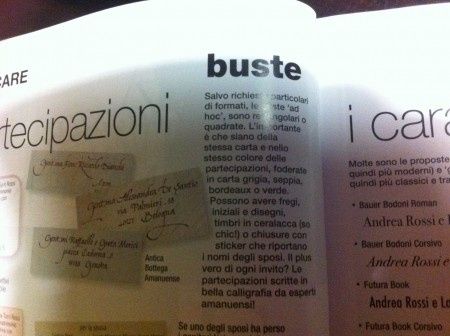 CARE
rtecipazioni
Gent.mi Fam. Riccardo Bianchi
Gent.ma Alessandra De Sanctis
via Palmieri, 18
Bologna
Gent.mi Raffaella e Greta Merici
Antica
Bottega
Amanuense
per la sposa
buste
Salvo richieste particolari
di formati, le buste 'ad
hoc', sono rettangolari o
quadrate. L'importante
è che siano della
stessa carta e nello
stesso colore delle
partecipazioni, foderate
in carta grigia, seppia,
bordeaux o verde.
Possono avere fregi,
iniziali e disegni,
timbri in ceralacca (so
chic!) o chiusure con
sticker che riportano
i nomi degli sposi. Il plus
vero di ogni invito? Le
partecipazioni scritte in
bella calligrafia da esperti
amanuensi!
Se uno degli sposi ha perso
i cara
Molte sono le proposte
quindi più moderni) e 'g
quindi più classici e tra
• Bauer Bodoni Roman
Andrea Rossi e I
• Bauer Bodoni Corsivo
Andrea Rossi e
• Futura Book
Andrea Rossi e La
• Futura Book Corsivo